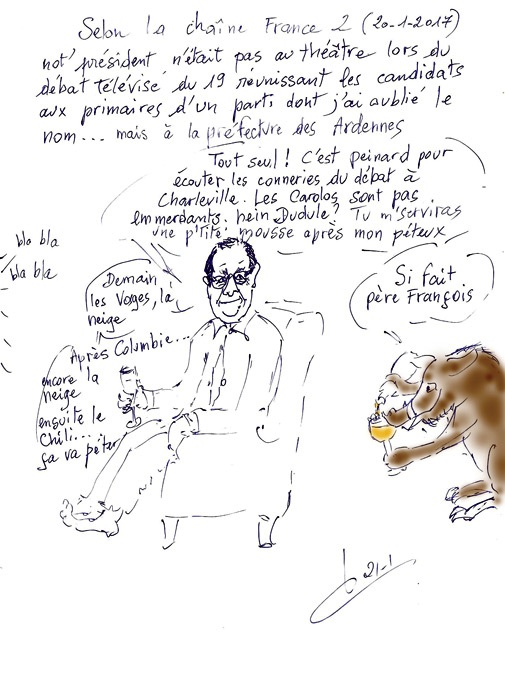 Selon la chaîne France 2 (20-1-2017)
not' président n'était pas au théâtre lors du
débat télévisé du 19 réunissant les candidats
aux primaires d'un parti dont j'ai oublié le
nom... mais à la préfecture des Ardennes
Tout seul! C'est peinard pour
écouter les conneries du débat à
Charleville. Les Carolos sont pas
emmerdants. hein Dudule? Tu m'serviras
une p'tite mousse après mon péteux
bla bla
bla bla
Demain
les Vosges, la
neige
Si fait
père François
Après Columbie...
encore la
neige
ensuite le
Chili...
ça va péter
21-1